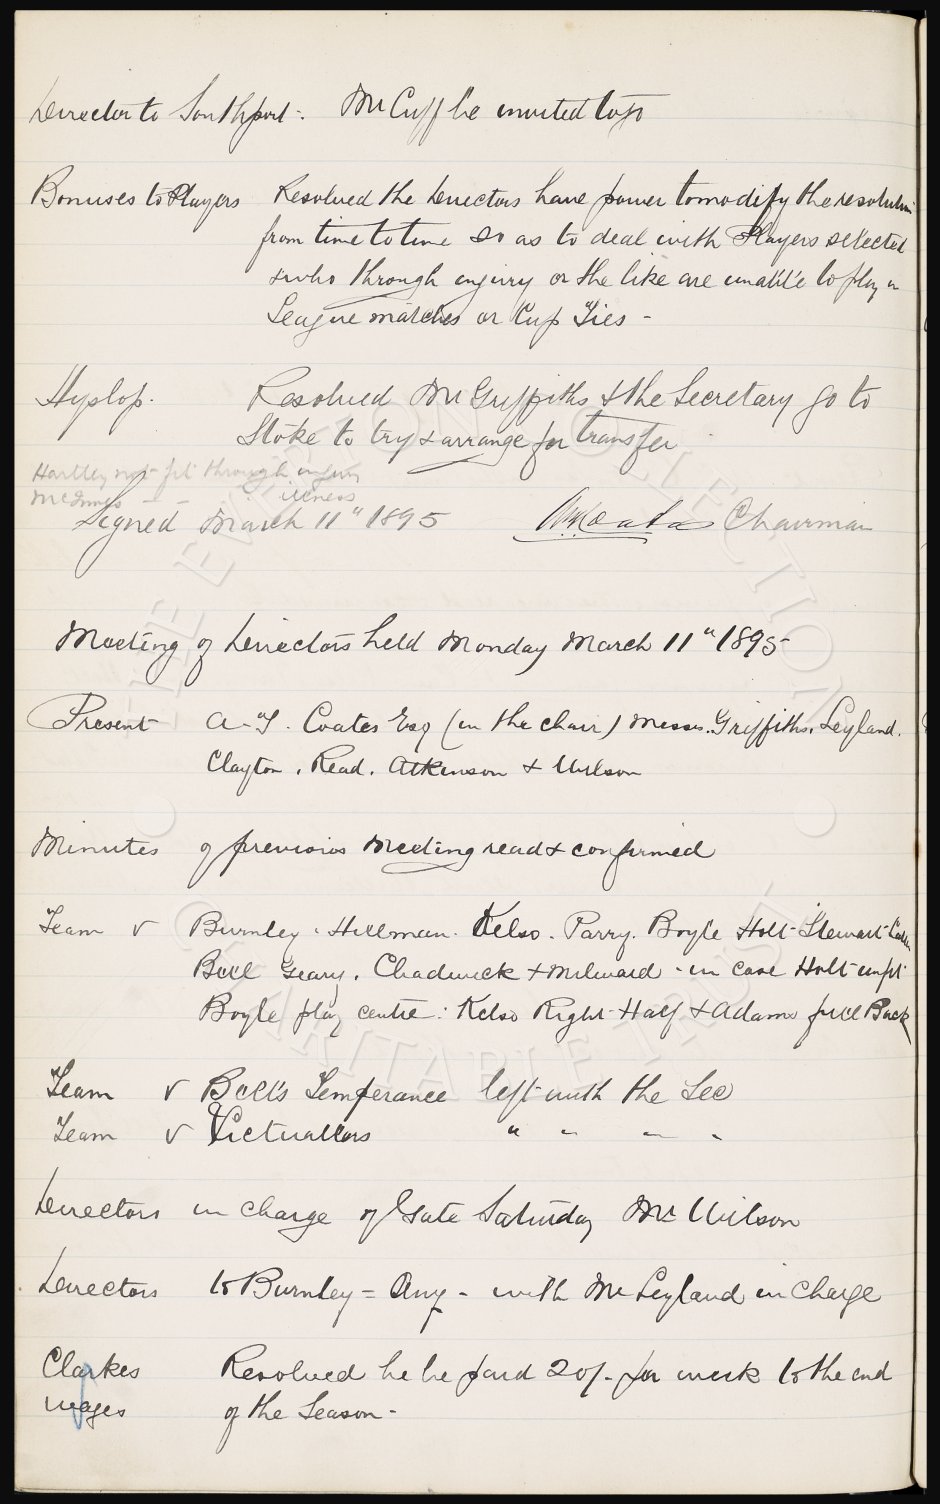 Director to Southport - Mr Cuff be invited to go
Bonuses to Players Resolved the Directors have power to modify the resolution
from time to time so as to deal with Players selected
& who through injury or the like are unable to play in
League matches or Cup Ties -
Hyslop. Resolved Mr Griffiths & the Secretary go to
Stoke to try & arrange for transfer
Hartley not fit through injury
McInnes - - illness
Signed March 11" 1895 Chairman
Meeting of Directors held Monday March 11" 1895
Present A. T. Coates Esq (in the chair) Messrs. Griffiths. Leyland.
Clayton. Read. Atkinson & Wilson
Minutes of previous Meeting read & confirmed
Team v Burnley. Hillman. Kelso. Parry. Boyle Holt Stewart Latta
Bell Geary. Chadwick & Milward - in case Holt unfit
Boyle play centre: Kelso Right Half & Adams full Back
Team v Bell's Temperance left with the Sec
Team v Victuallers " " " "
Directors in charge of Gate Saturday Mr Wilson
Directors to Burnley = Any - with Mr Leyland in charge
Clarkes Resolved he be paid 20/- per week to the end
wages of the Season -
THE EVERTON COLLECTION
CHARITABLE TRUST